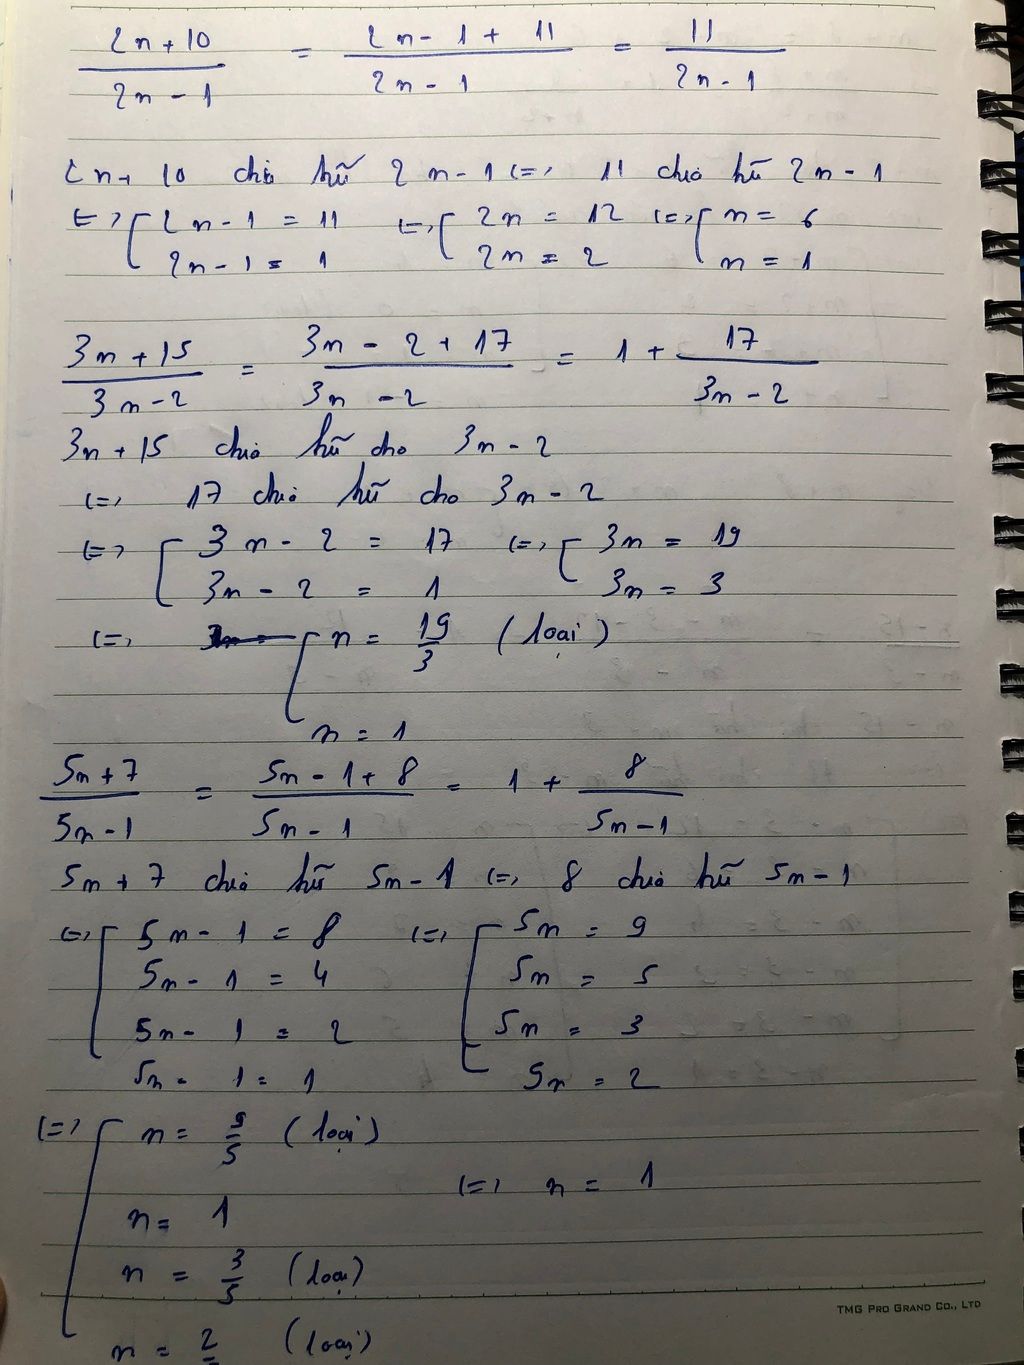 (2n + 10)/(2n - 1) = (2n - 1 + 11)/(2n - 1) = 11/(2n - 1)
2n + 10 chia hết 2n - 1 <=> 11 chia hết 2n - 1
<=> [ 2n - 1 = 11 <=> [ 2n = 12 <=> [ n = 6
2n - 1 = 1 2n = 2 n = 1
(3n + 15)/(3n - 2) = (3n - 2 + 17)/(3n - 2) = 1 + 17/(3n - 2)
3n + 15 chia hết cho 3n - 2
<=> 17 chia hết cho 3n - 2
<=> [ 3n - 2 = 17 <=> [ 3n = 19
3n - 2 = 1 3n = 3
<=> [ n = 19/3 (loại)
n = 1
(5n + 7)/(5n - 1) = (5n - 1 + 8)/(5n - 1) = 1 + 8/(5n - 1)
5n + 7 chia hết 5n - 1 <=> 8 chia hết 5n - 1
<=> [ 5n - 1 = 8 <=> [ 5n = 9
5n - 1 = 4 5n = 5
5n - 1 = 2 5n = 3
5n - 1 = 1 5n = 2
<=> [ n = 9/5 (loại)
<=> n = 1
n = 1
n = 3/5 (loại)
n = 2/ (loại)
TMG PRO GRAND CO., LTD